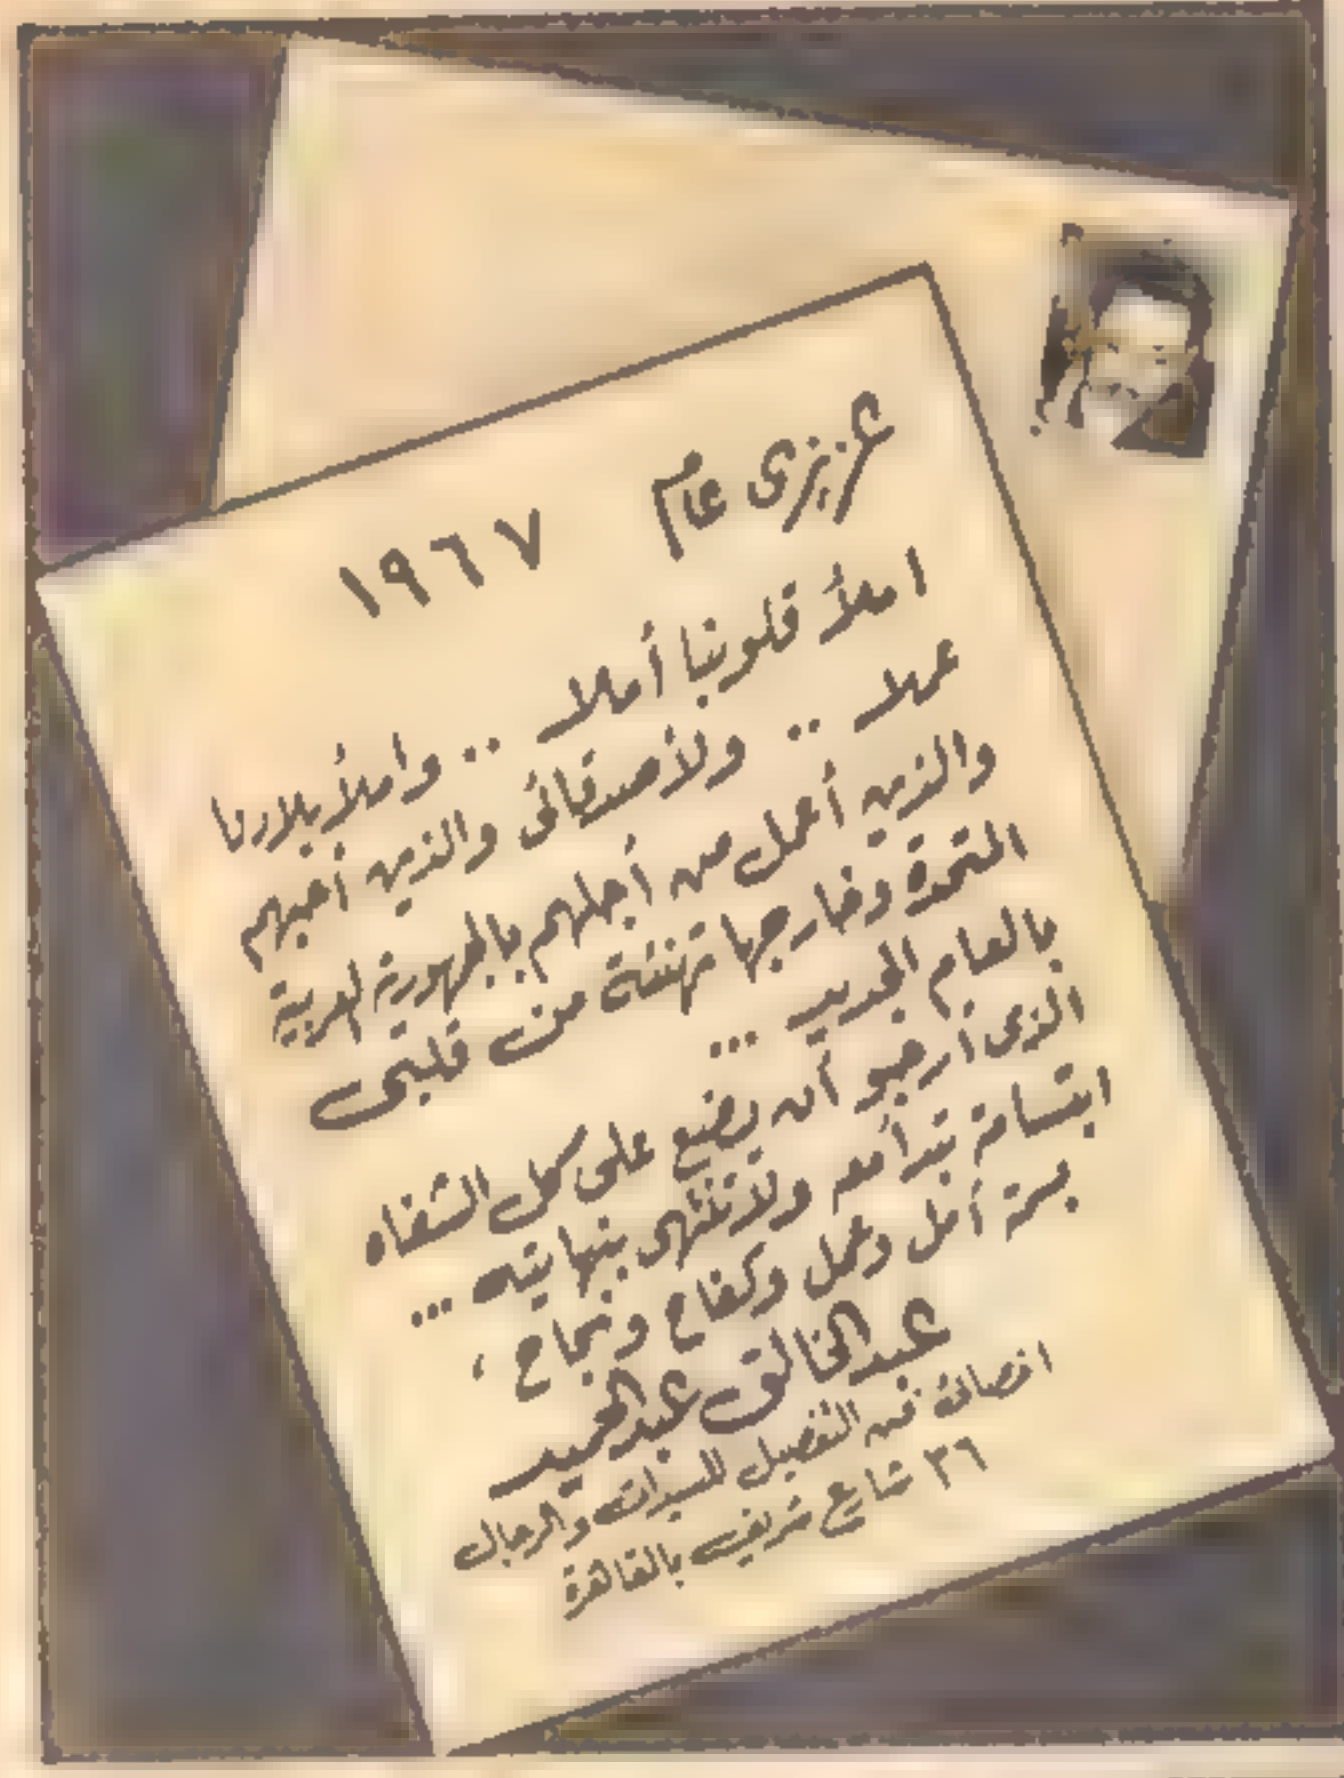 عزيزى عام ١٩٦٧
املأ قلوبنا أملا .. واملأ بلادنا
عملا .. ولأصدقائى والذين أحبهم
والذين أعمل من أجلهم بالجمهورية العربية
المتحدة وخارجها تهنئة من قلبى
بالعام الجديد ...
الذى أرجو أن يضع على كل الشفاه
ابتسامة تبدأ معه ولا تنتهى بنهايته ...
بسمة أمل وعمل وكفاح ونجاح ،
عبد الخالق عبد الحميد
اخصائى فى التفصيل للسيدات والرجال
٣٦ شارع شريف بالقاهرة